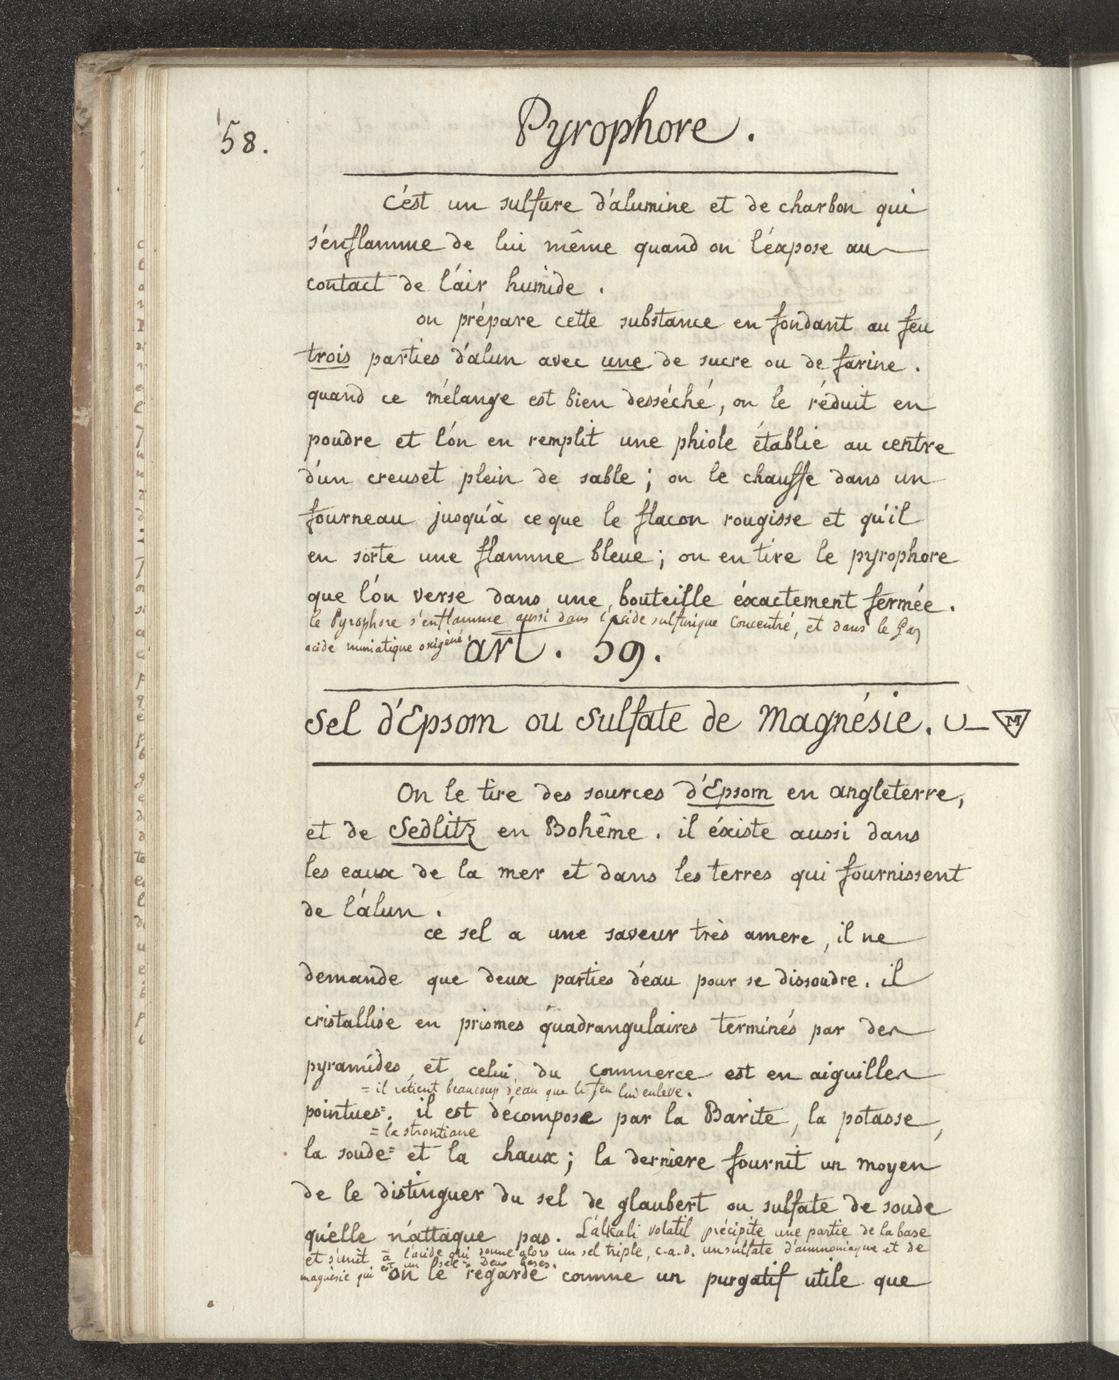 58.
Pyrophore.
c'est un sulfure d'alumine et de charbon qui
s'enflamme de lui même quand on l'éxpose au
contact de l'air humide.
on prépare cette substance en fondant au feu
trois parties d'alun avec une de sucre ou de farine.
quand ce mélange est bien desséché, on le réduit en
poudre et l'on en remplit une phiole établie au centre
d'un creuset plein de sable; on le chauffe dans un
fourneau jusqu'à ce que le flacon rougisse et qu'il
en sorte une flamme bleue; on en tire le pyrophore
que l'on verse dans une bouteille éxactement fermée.
le Pyrophore s'enflamme aussi dans l'acide sulfurique concentré, et dans le Gaz
acide muriatique oxigéné
art. 59.
sel d'Epsom ou sulfate de magnésie.
On le tire des sources d'Epsom en angleterre,
et de Sedlitz en Bohême. il éxiste aussi dans
les eaux de la mer et dans les terres qui fournissent
de l'alun.
ce sel a une saveur très amere, il ne
demande que deux parties d'eau pour se dissoudre. il
cristallise en prismes quadrangulaires terminés par des
pyramides, et celui du commerce est en aiguilles
= il retient beaucoup d'eau que le feu lui enleve.
pointues=. il est décomposé par la Barite, la potasse,
= la strontiane
la soude= et la chaux; la derniere fournit un moyen
de le distinguer du sel de glaubert ou sulfate de soude
qu'elle n'attaque pas. L'alkali volatil précipite une partie de la base
et s'unit à l'acide qui donne alors un sel triple, c.a.d. un sulfate d'ammoniaque et de
magnésie qui est un sel à deux bases.
on le regarde comme un purgatif utile que